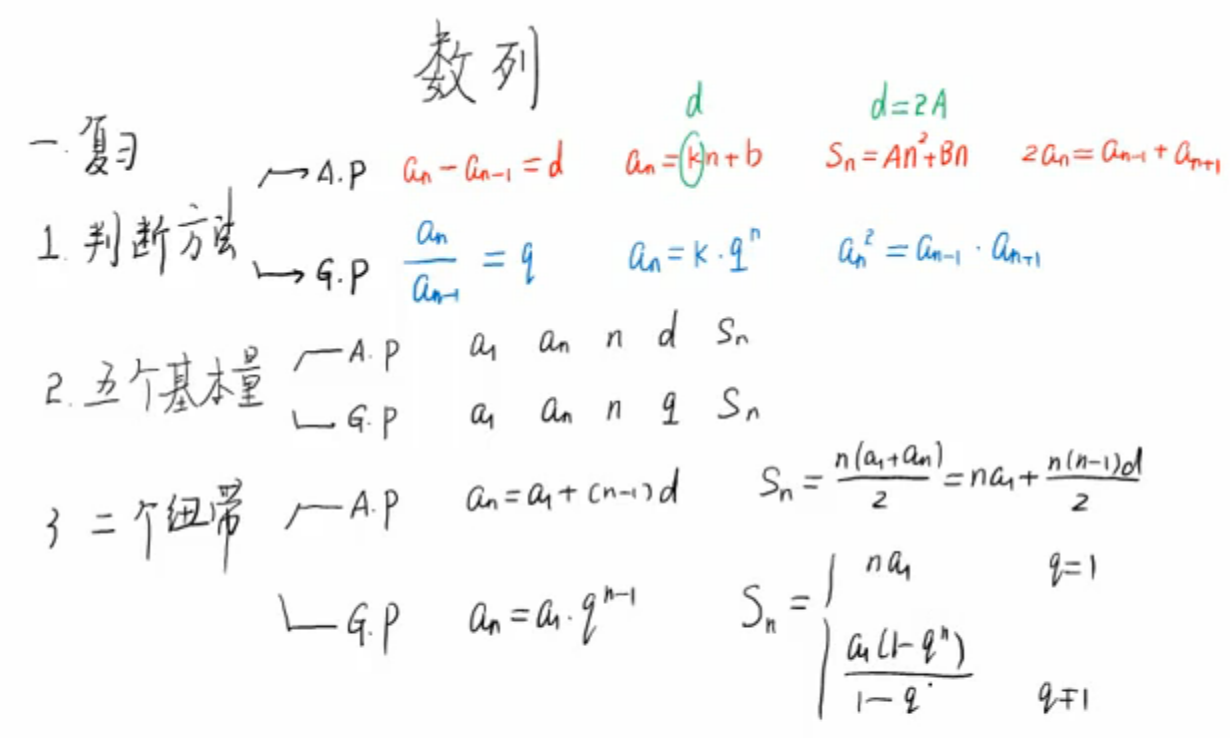 数列
一.复习
d d=2A
→A.P aₙ-aₙ₋₁=d aₙ=kn+b Sₙ=An²+Bn 2aₙ=aₙ₋₁+aₙ₊₁
1.判断方法
→G.P aₙ/aₙ₋₁=q aₙ=k·qⁿ aₙ²=aₙ₋₁·aₙ₊₁
2.五个基本量
A.P a₁ aₙ n d Sₙ
G.P a₁ aₙ n q Sₙ
3 二个纽带
A.P aₙ=a₁+(n-1)d Sₙ=n(a₁+aₙ)/2=na₁+n(n-1)d/2
G.P aₙ=a₁·qⁿ⁻¹ Sₙ={na₁ q=1
a₁(1-qⁿ)/1-q q≠1